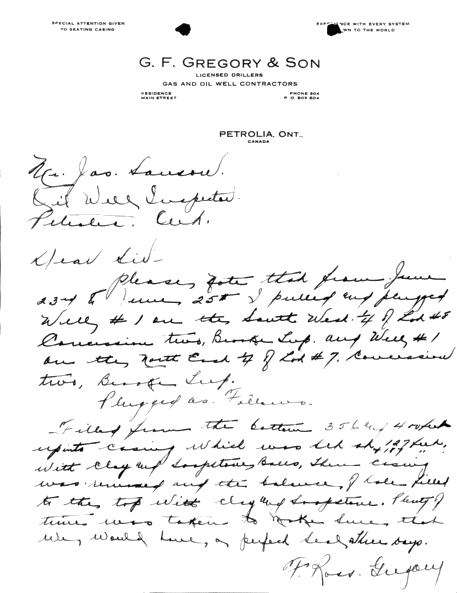 SPECIAL ATTENTION GIVEN
TO SEATING CASING
WITH EVERY SYSTEM
TO THE WORLD
G. F. GREGORY & SON
LICENSED DRILLERS
GAS AND OIL WELL CONTRACTORS
RESIDENCE
MAIN STREET
PHONE 304
P. O. BOX 604
PETROLIA, ONT.,
CANADA
Mr. Jas.
Oil Well Inspector.
Petrolia. Ont.
Dear Sir-
Please note that from June
23rd & June 25th I pulled and plugged
Well # 1 on the South West ¼ of Lot # 8
Concession two, Brooke Twp. and Well # 1
on the North East ¼ of Lot # 7. Concession
two, Brooke Twp.
Plugged as. Follows.
Filled from the bottom 356 and 400 feet
up into casing which was set at 127 feet,
with clay and Soapstone Balls, then casing
was removed and the balance, of hole filled
to the top with clay and Soapstone. Plenty of
time was taken to make sure that
we, would have, a perfect seal, three days.
F. Ross. Gregory